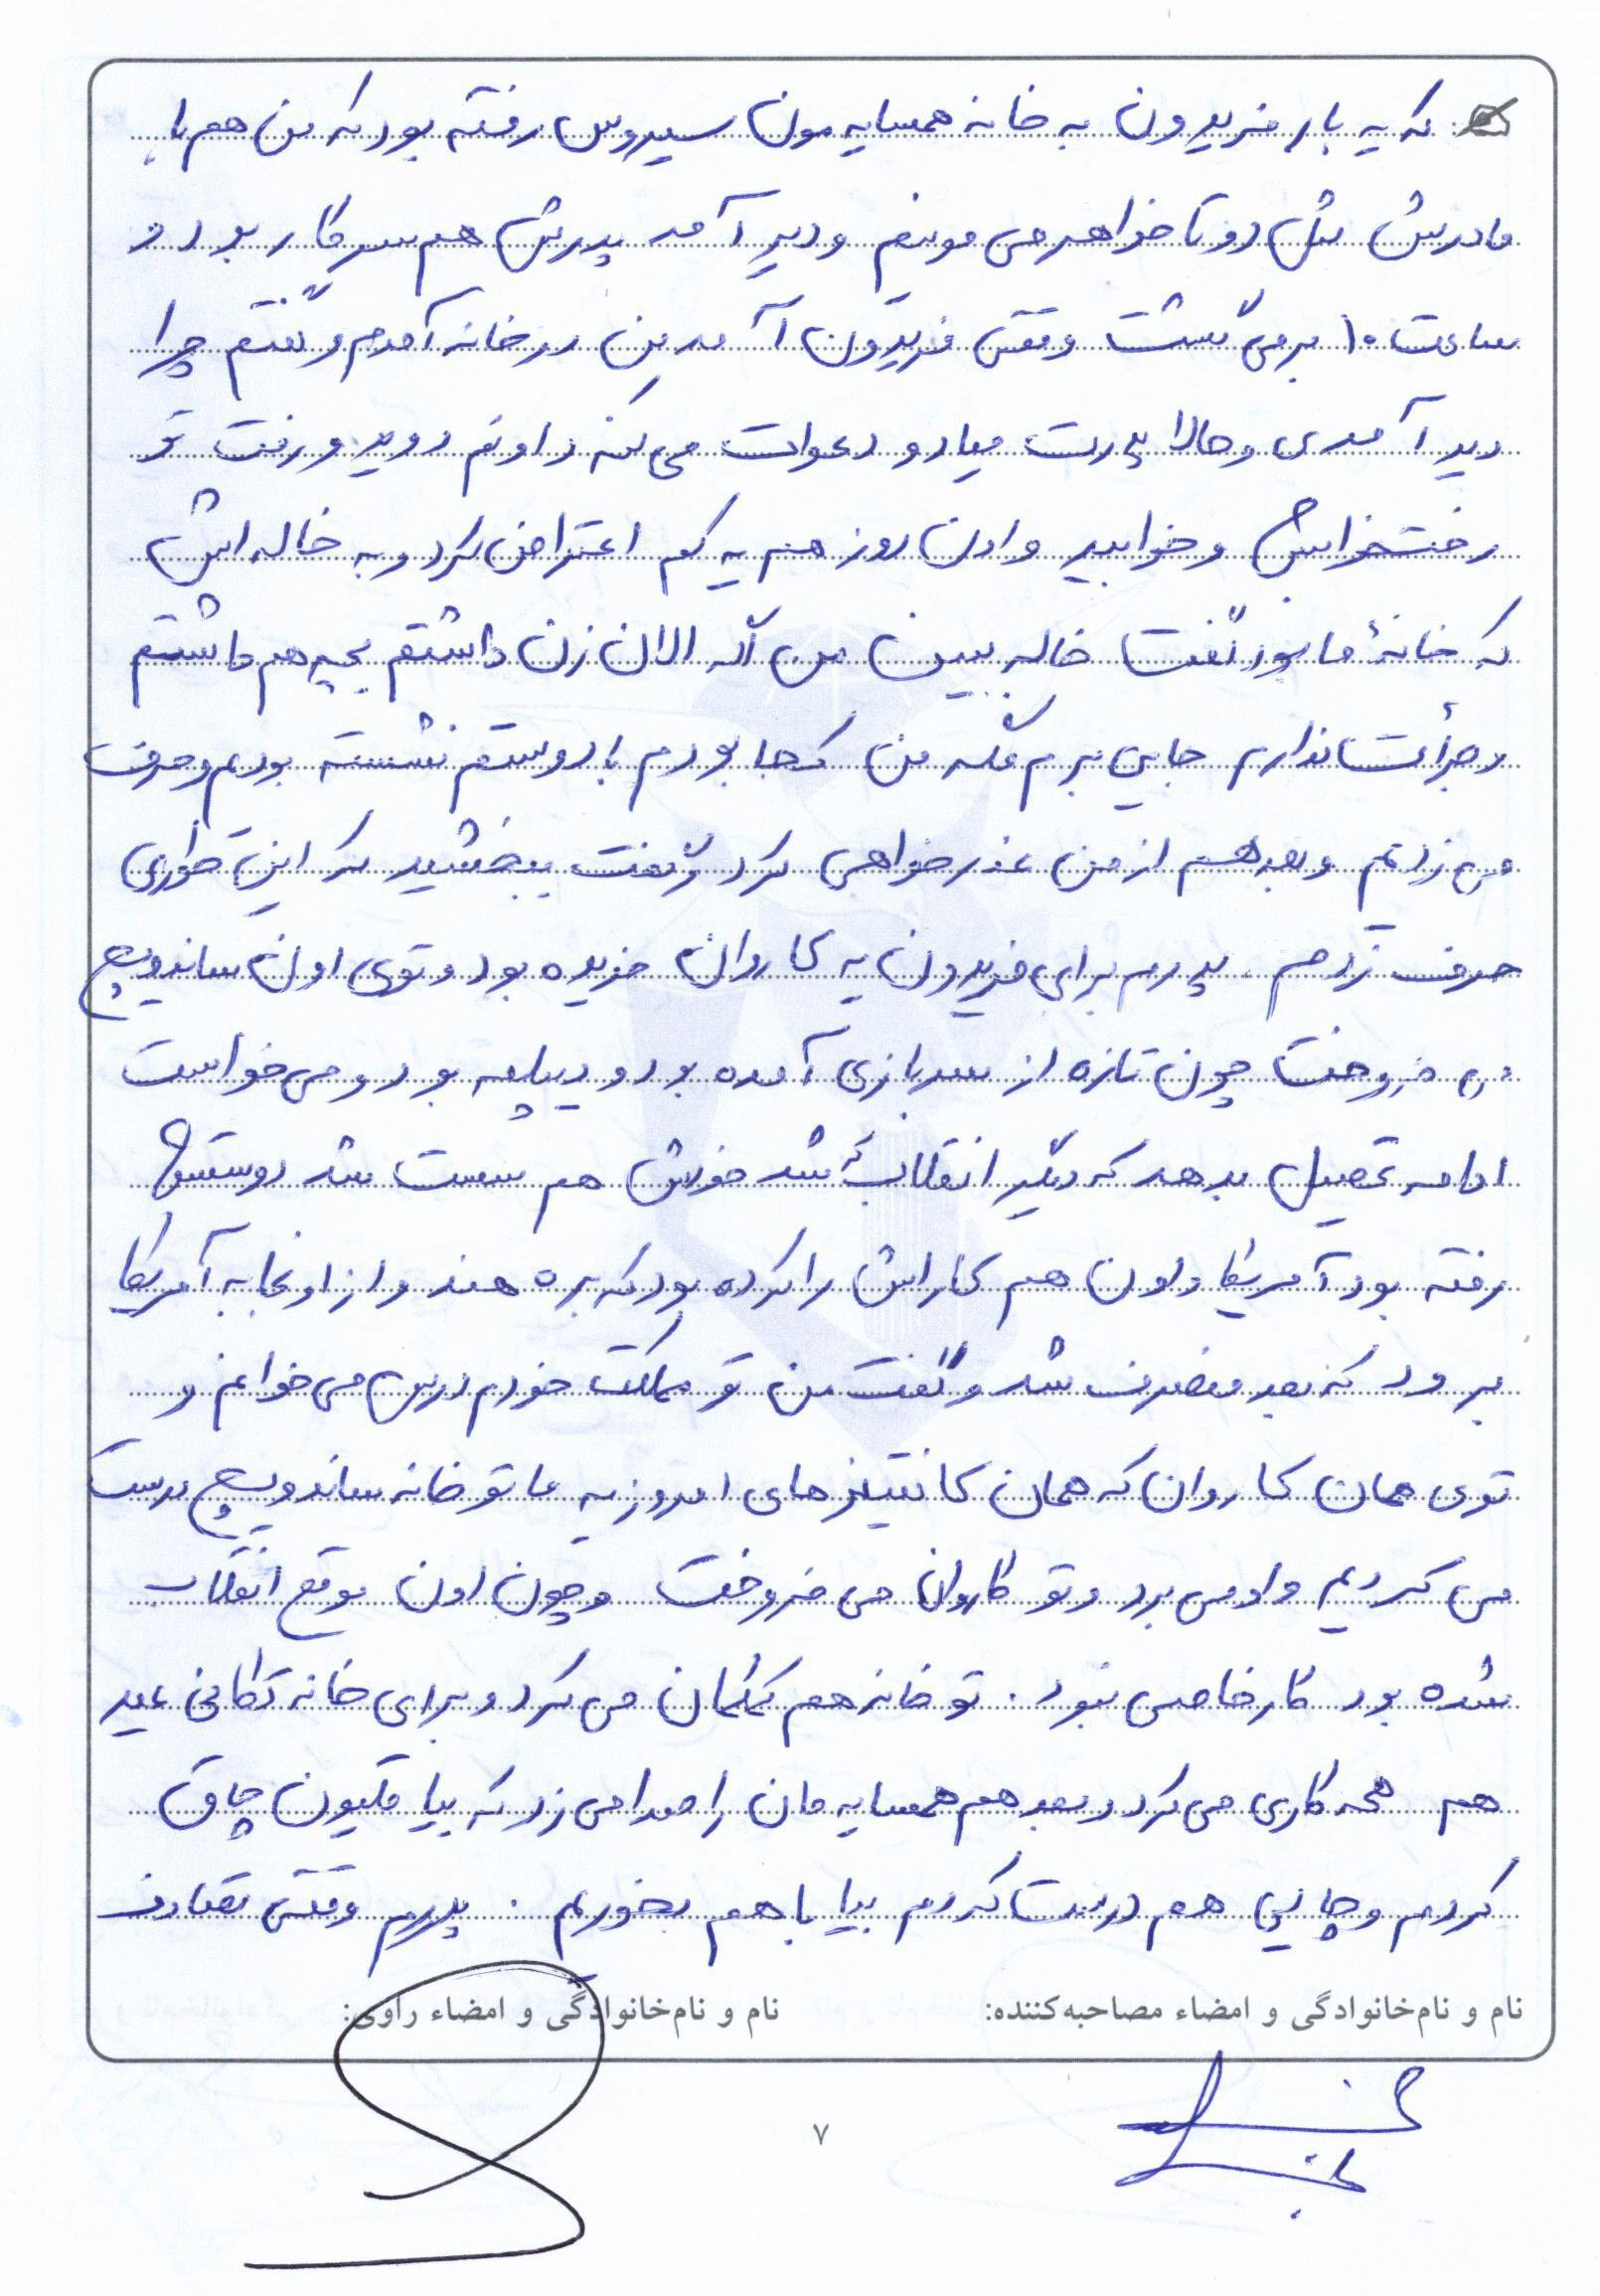 که یه بار فریدون به خانه همسایه مون سیروس رفته بود که من هم با
مادرش مثل دو تا خواهر می مونیم و دیر آمد پدرش هم سر کار بود و
ساعت ۱۰ برمی گشت وقتی فریدون آمد من در خانه آمدم و گفتم چرا
دیر آمدی و حالا پدرت میاد و دعوات می کنه و اونم دوید و رفت تو
رختخوابش و خوابید و اون روز هم یه کم اعتراض کرد و به خاله اش
که خانهٔ ما بود گفت خاله ببین من اگه الان زن داشتم بچه هم داشتم
و جرأت ندارم جایی برم مگه من کجا بودم با دوستم نشسته بودیم و حرف
می زدیم و بعد هم از من عذرخواهی کرد و گفت ببخشید که این طوری
حرف زدم. پدرم برای فریدون یه کاروان خریده بود و توی اون ساندویچ
می فروخت چون تازه از سربازی آمده بود و دیپلمه بود و می خواست
ادامه تحصیل بدهد که دیگر انقلاب شد خودش هم سست شد دوستش
رفته بود آمریکا و اون هم کاراش را کرده بود که بره هند و از اونجا به آمریکا
برود که بعد منصرف شد و گفت من تو مملکت خودم درس می خوانم و
توی همان کاروان که همان کانتینرهای امروزیه ما تو خانه ساندویچ درست
می کردیم و او می برد و تو کاروان می فروخت و چون اون موقع انقلاب
شده بود کار خاصی نبود. تو خانه هم کمکمان می کرد و برای خانه تکانی عید
هم همه کاری می کرد و بعد هم همسایه مان را صدا می زد که بیا قلیون چاق
کردم و چایی هم درست کردم بیا با هم بخوریم. پدرم وقتی تصادف
نام و نام‌خانوادگی و امضاء مصاحبه‌کننده: نام و نام‌خانوادگی و امضاء راوی:
۷